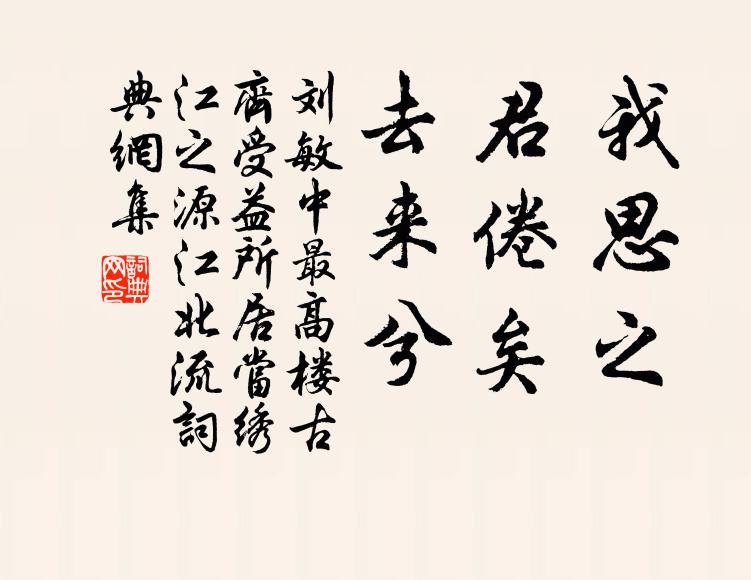 我思之
君倦矣
去来兮
刘敏中最高楼古
齋受益所居當绣
江之源江北流詞
典網集
詞典网印